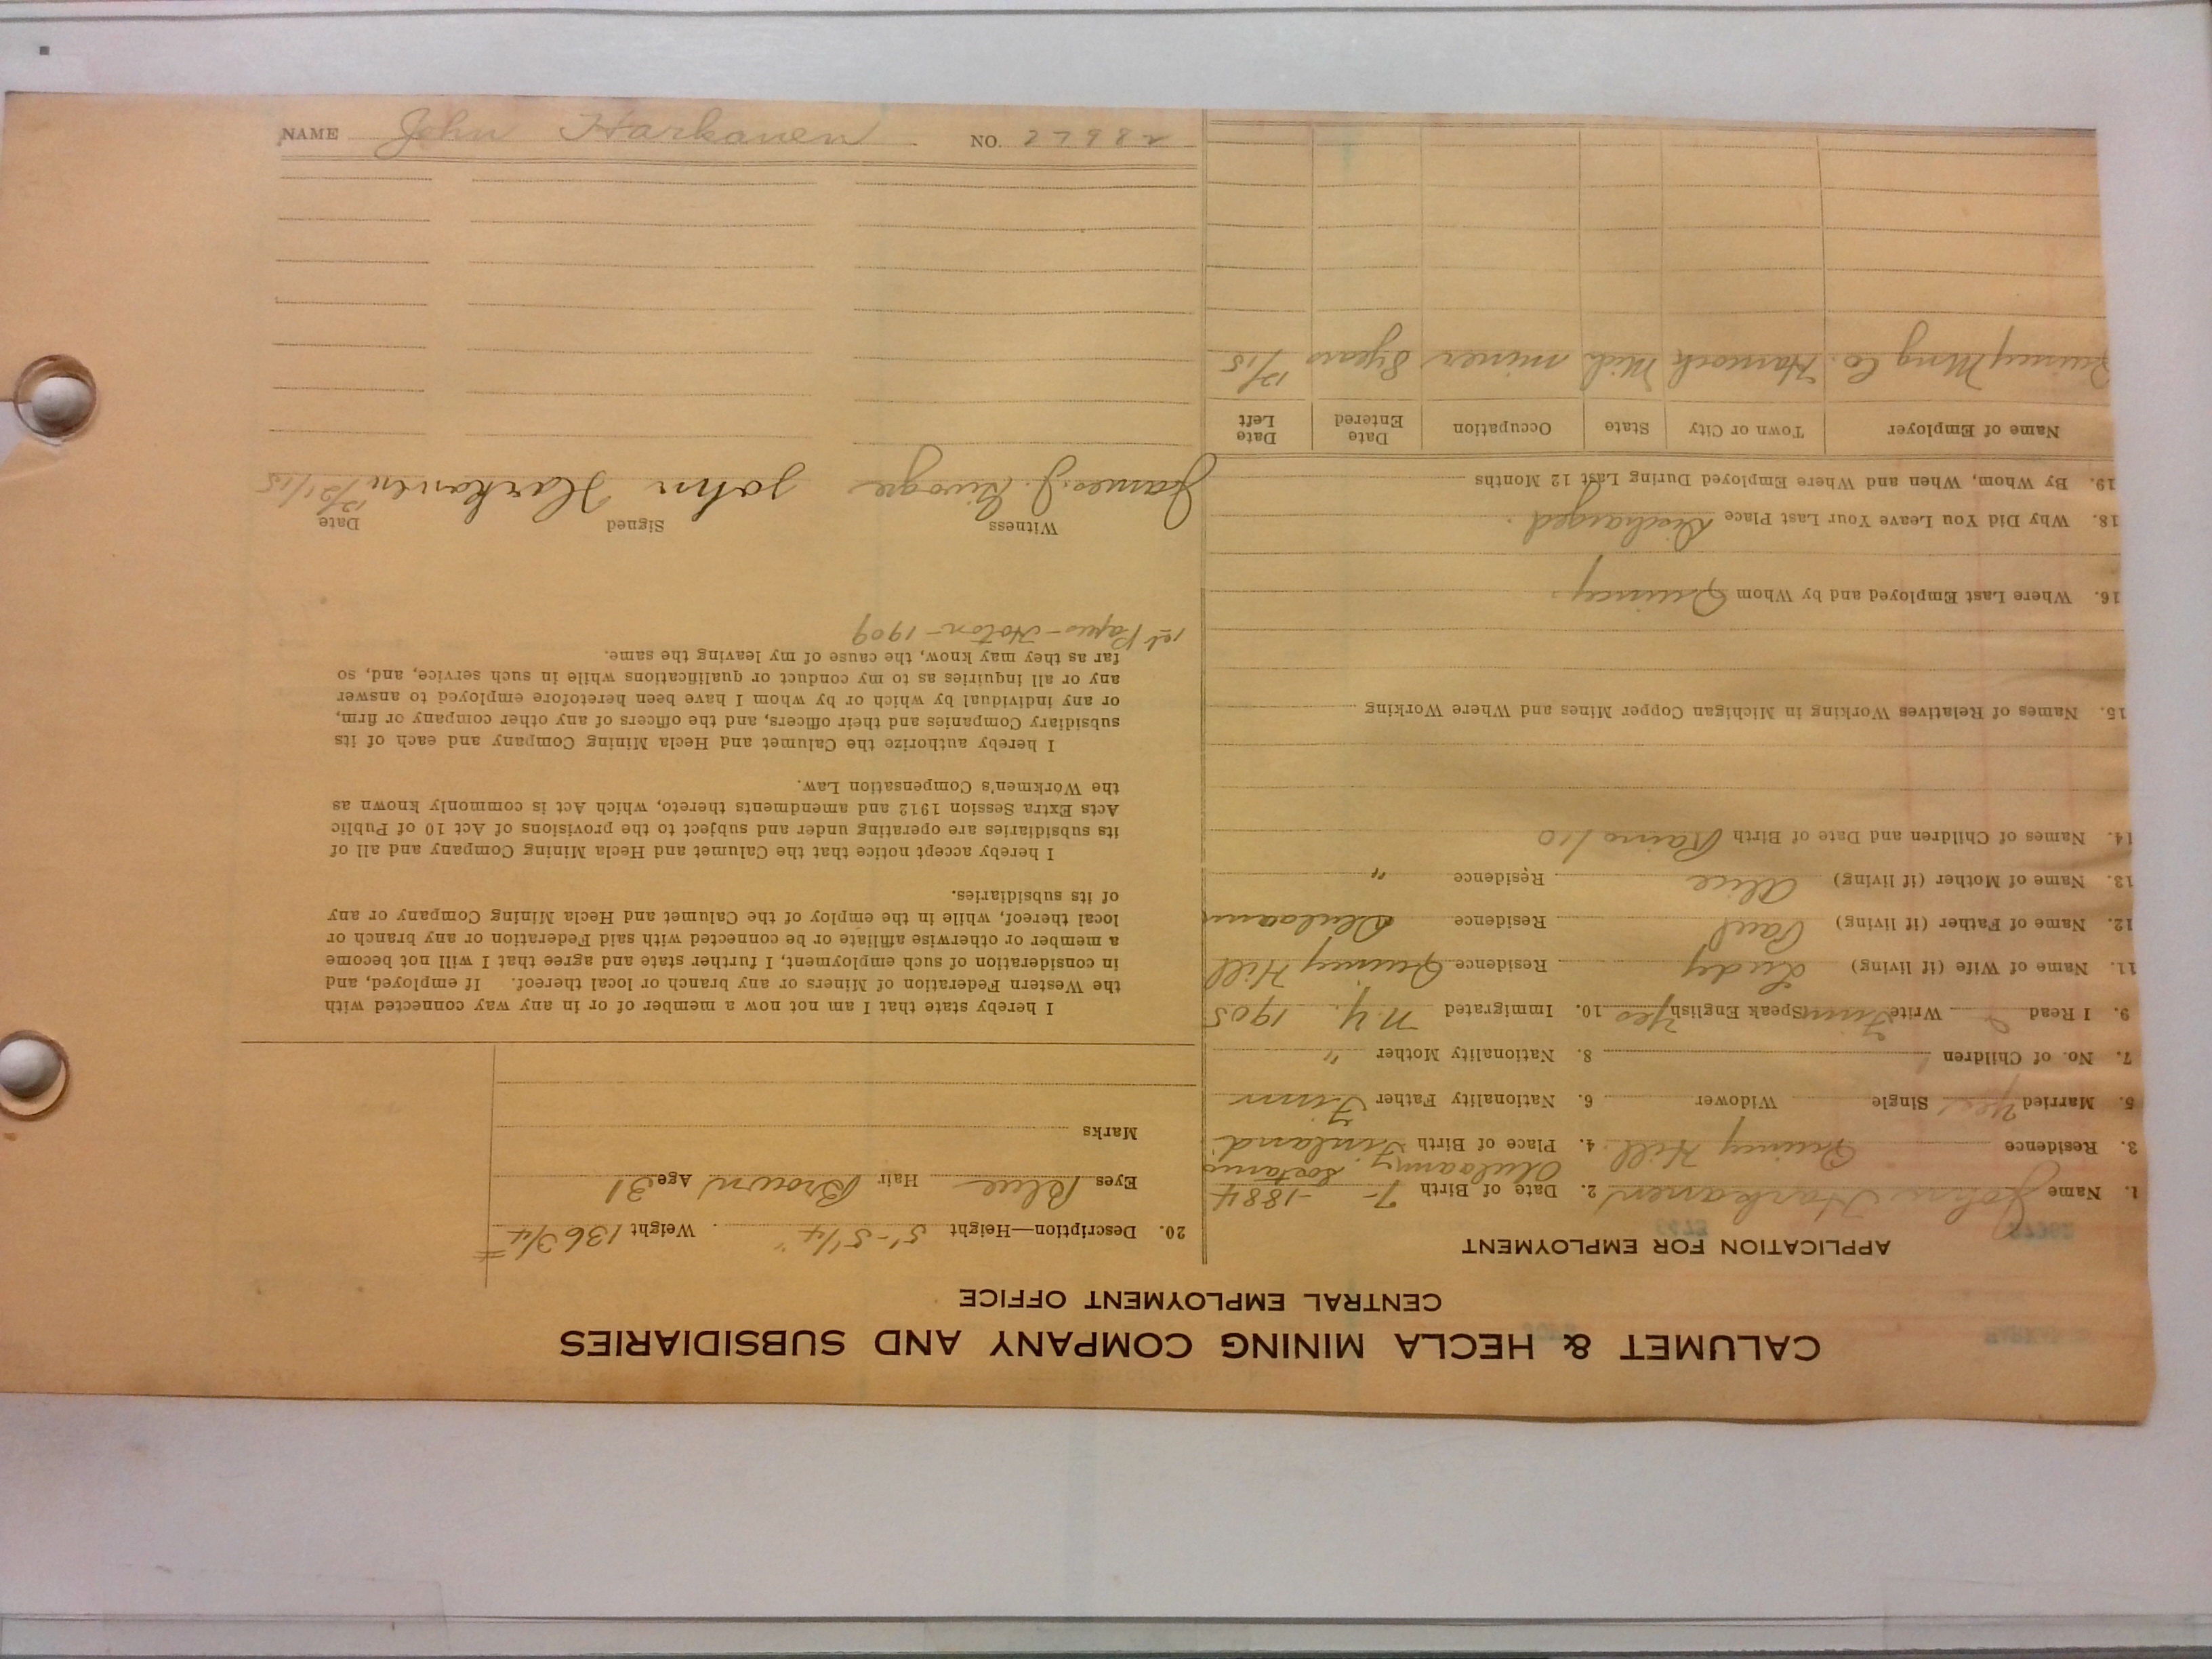 CALUMET & HECLA MINING COMPANY AND SUBSIDIARIES
CENTRAL EMPLOYMENT OFFICE
APPLICATION FOR EMPLOYMENT
1. Name John Harkanen 2. Date of Birth 7- -1884
3. Residence Quincy Hill 4. Place of Birth Finland
5. Married Yes Single Widower 6. Nationality Father Finn
7. No. of Children 1 8. Nationality Mother "
9. I Read Write Finn Speak English Yes 10. Immigrated N.Y. 1905
11. Name of Wife (if living) Residence Quincy Hill
12. Name of Father (if living) Paul Residence
13. Name of Mother (if living) Alice Residence "
14. Names of Children and Date of Birth
15. Names of Relatives Working in Michigan Copper Mines and Where Working
16. Where Last Employed and by Whom Quincy
18. Why Did You Leave Your Last Place Discharged
19. By Whom, When and Where Employed During Last 12 Months
Name of Employer Town or City State Occupation Date Entered Date Left
Quincy Mng Co. Hancock Mich miner 8 years 12/15
20. Description—Height 5'-5 1/4" Weight 136 3/4 #
Eyes Blue Hair Brown Age 31
Marks
I hereby state that I am not now a member of or in any way connected with
the Western Federation of Miners or any branch or local thereof. If employed, and
in consideration of such employment, I further state and agree that I will not become
a member or otherwise affiliate or be connected with said Federation or any branch or
local thereof, while in the employ of the Calumet and Hecla Mining Company or any
of its subsidiaries.
I hereby accept notice that the Calumet and Hecla Mining Company and all of
its subsidiaries are operating under and subject to the provisions of Act 10 of Public
Acts Extra Session 1912 and amendments thereto, which Act is commonly known as
the Workmen's Compensation Law.
I hereby authorize the Calumet and Hecla Mining Company and each of its
subsidiary Companies and their officers, and the officers of any other company or firm,
or any individual by which or by whom I have been heretofore employed to answer
any or all inquiries as to my conduct or qualifications while in such service, and, so
far as they may know, the cause of my leaving the same.
1st Papers - Hoton - 1909
Witness Signed Date
James J. John Harkanen 12/21/15
NAME John Harkanen NO. 27982